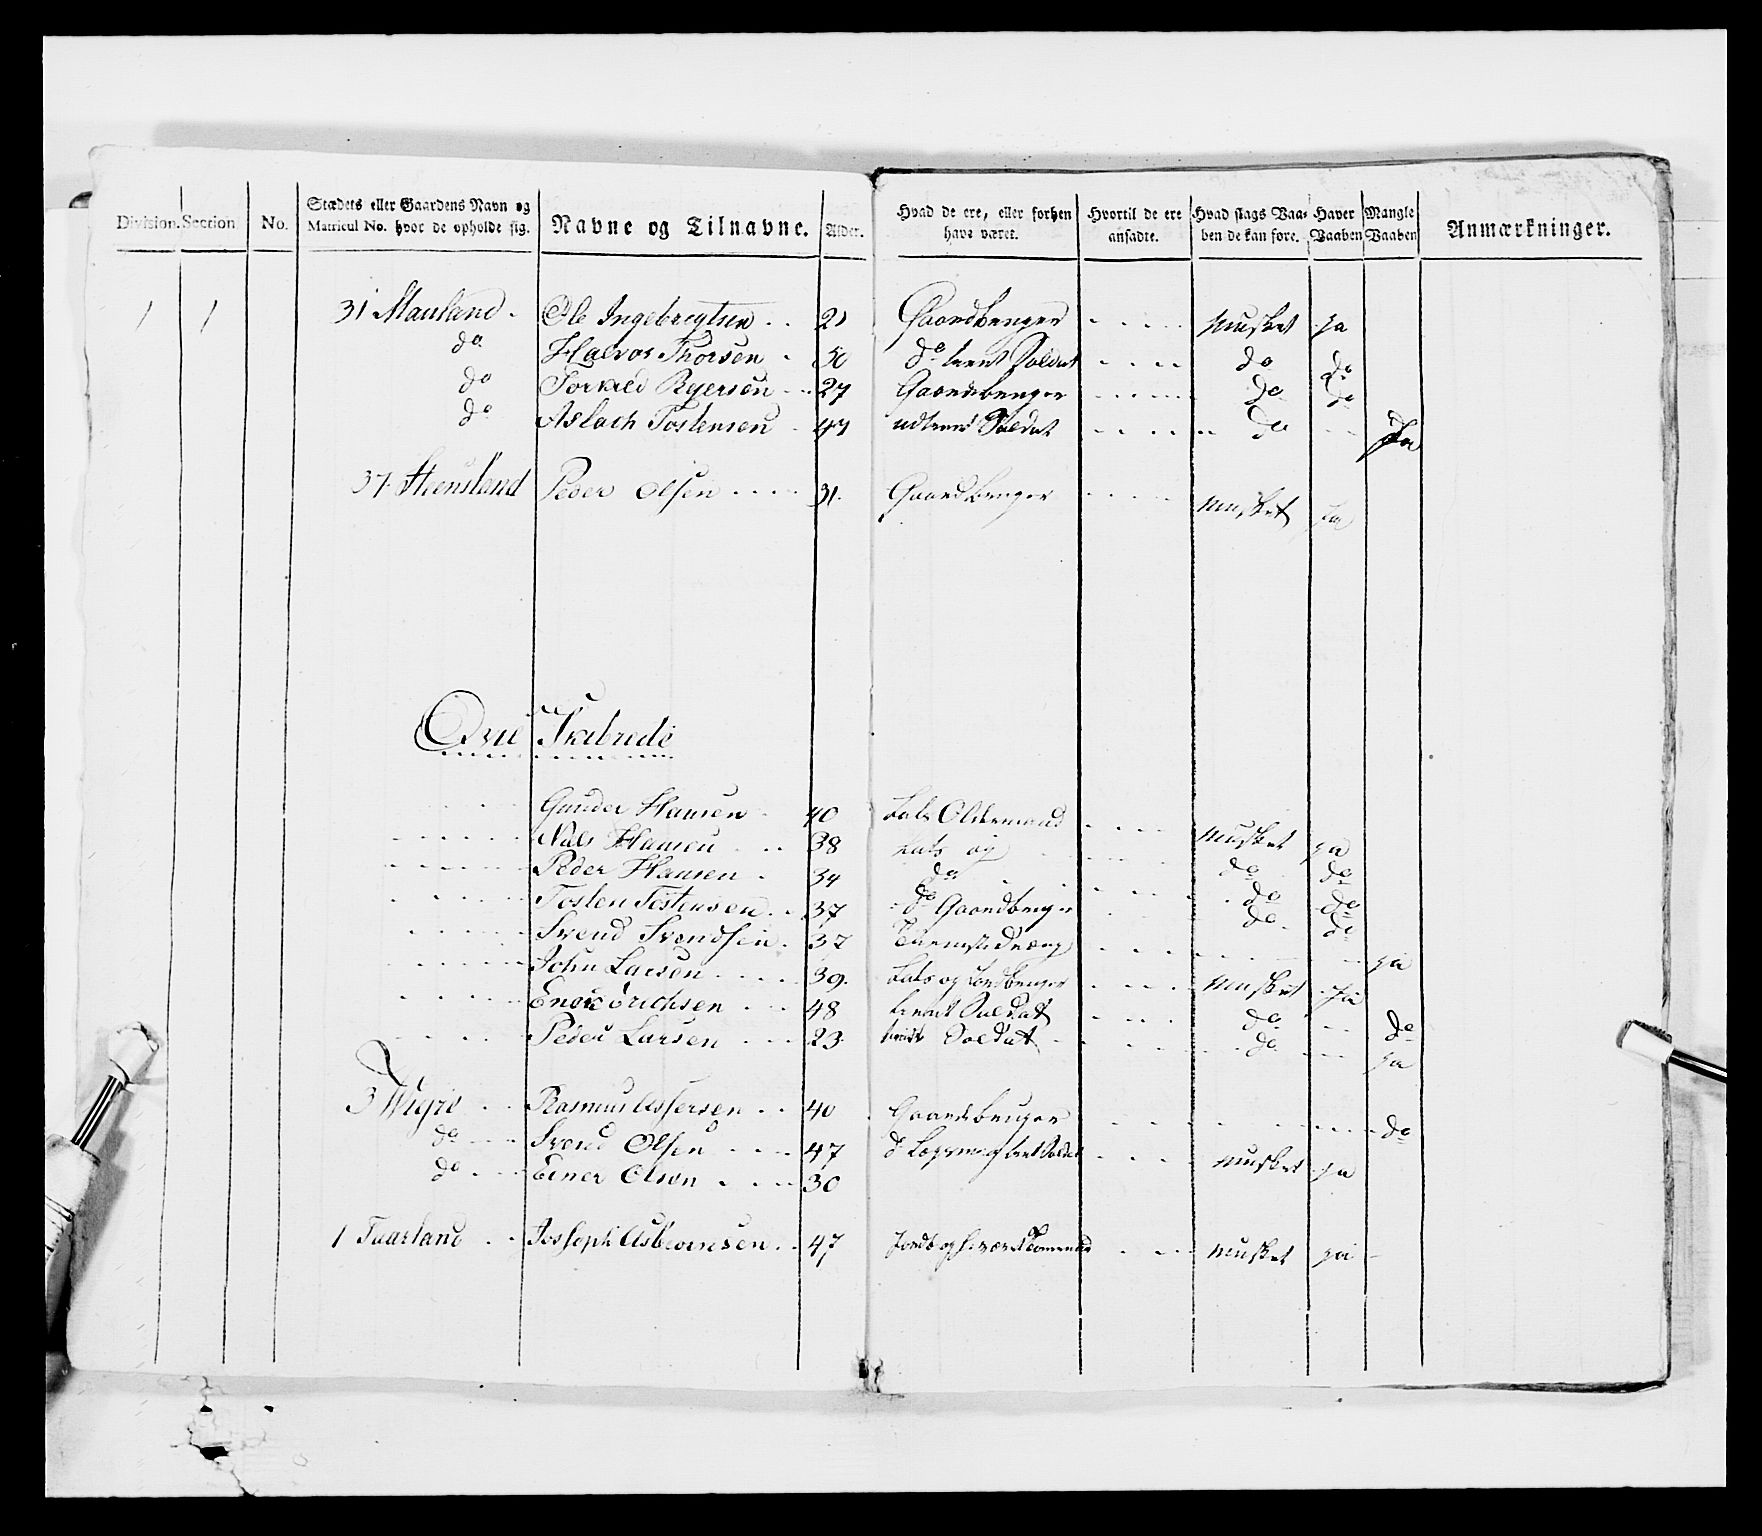 Division. Section No. Stædets eller Gaardens Navn og Matricul No. hvor de opholde sig. Navne og Tilnavne. Alder. Hvad de ere, eller forhen have været. Hvortil de ere ansadte. Hvad slags Vaaben de kan føre. Haver Vaaben Mangle Vaaben Anmærkninger.
1 1 31 Mauland Ole Ingebregtsen 21 Gaardbruger Musket ja
do Halvor Thorsen 50 do tient Soldat do do
do Torkild Rejersen 27 Gaardbruger do do
do Aslach Tostensen 47 udtient Soldat do Ja
37 Steensland Peder Olsen 31 Gaardbruger Musket Ja
Gunder Hansen 40 Lods Oldermand Musket ja
Niels Hansen 38 Lods og do do
Peder Hansen 34 do do do
Tosten Tostensen 37 do Gaardbruger do do
Svend Svendsen 37 ja
John Larsen 39 Lods og Jordbruger Musket Ja
Erichsen 48 tient Soldat do do
Peder Larsen 23 Soldat do ja
3 Rasmus Assersen 40 Gaardbruger do
do Svend Olsen 47 do tient Soldat Musket ja
do Einer Olsen 30
1 Taarland Josseph Asbiornsen 47 Musket ja